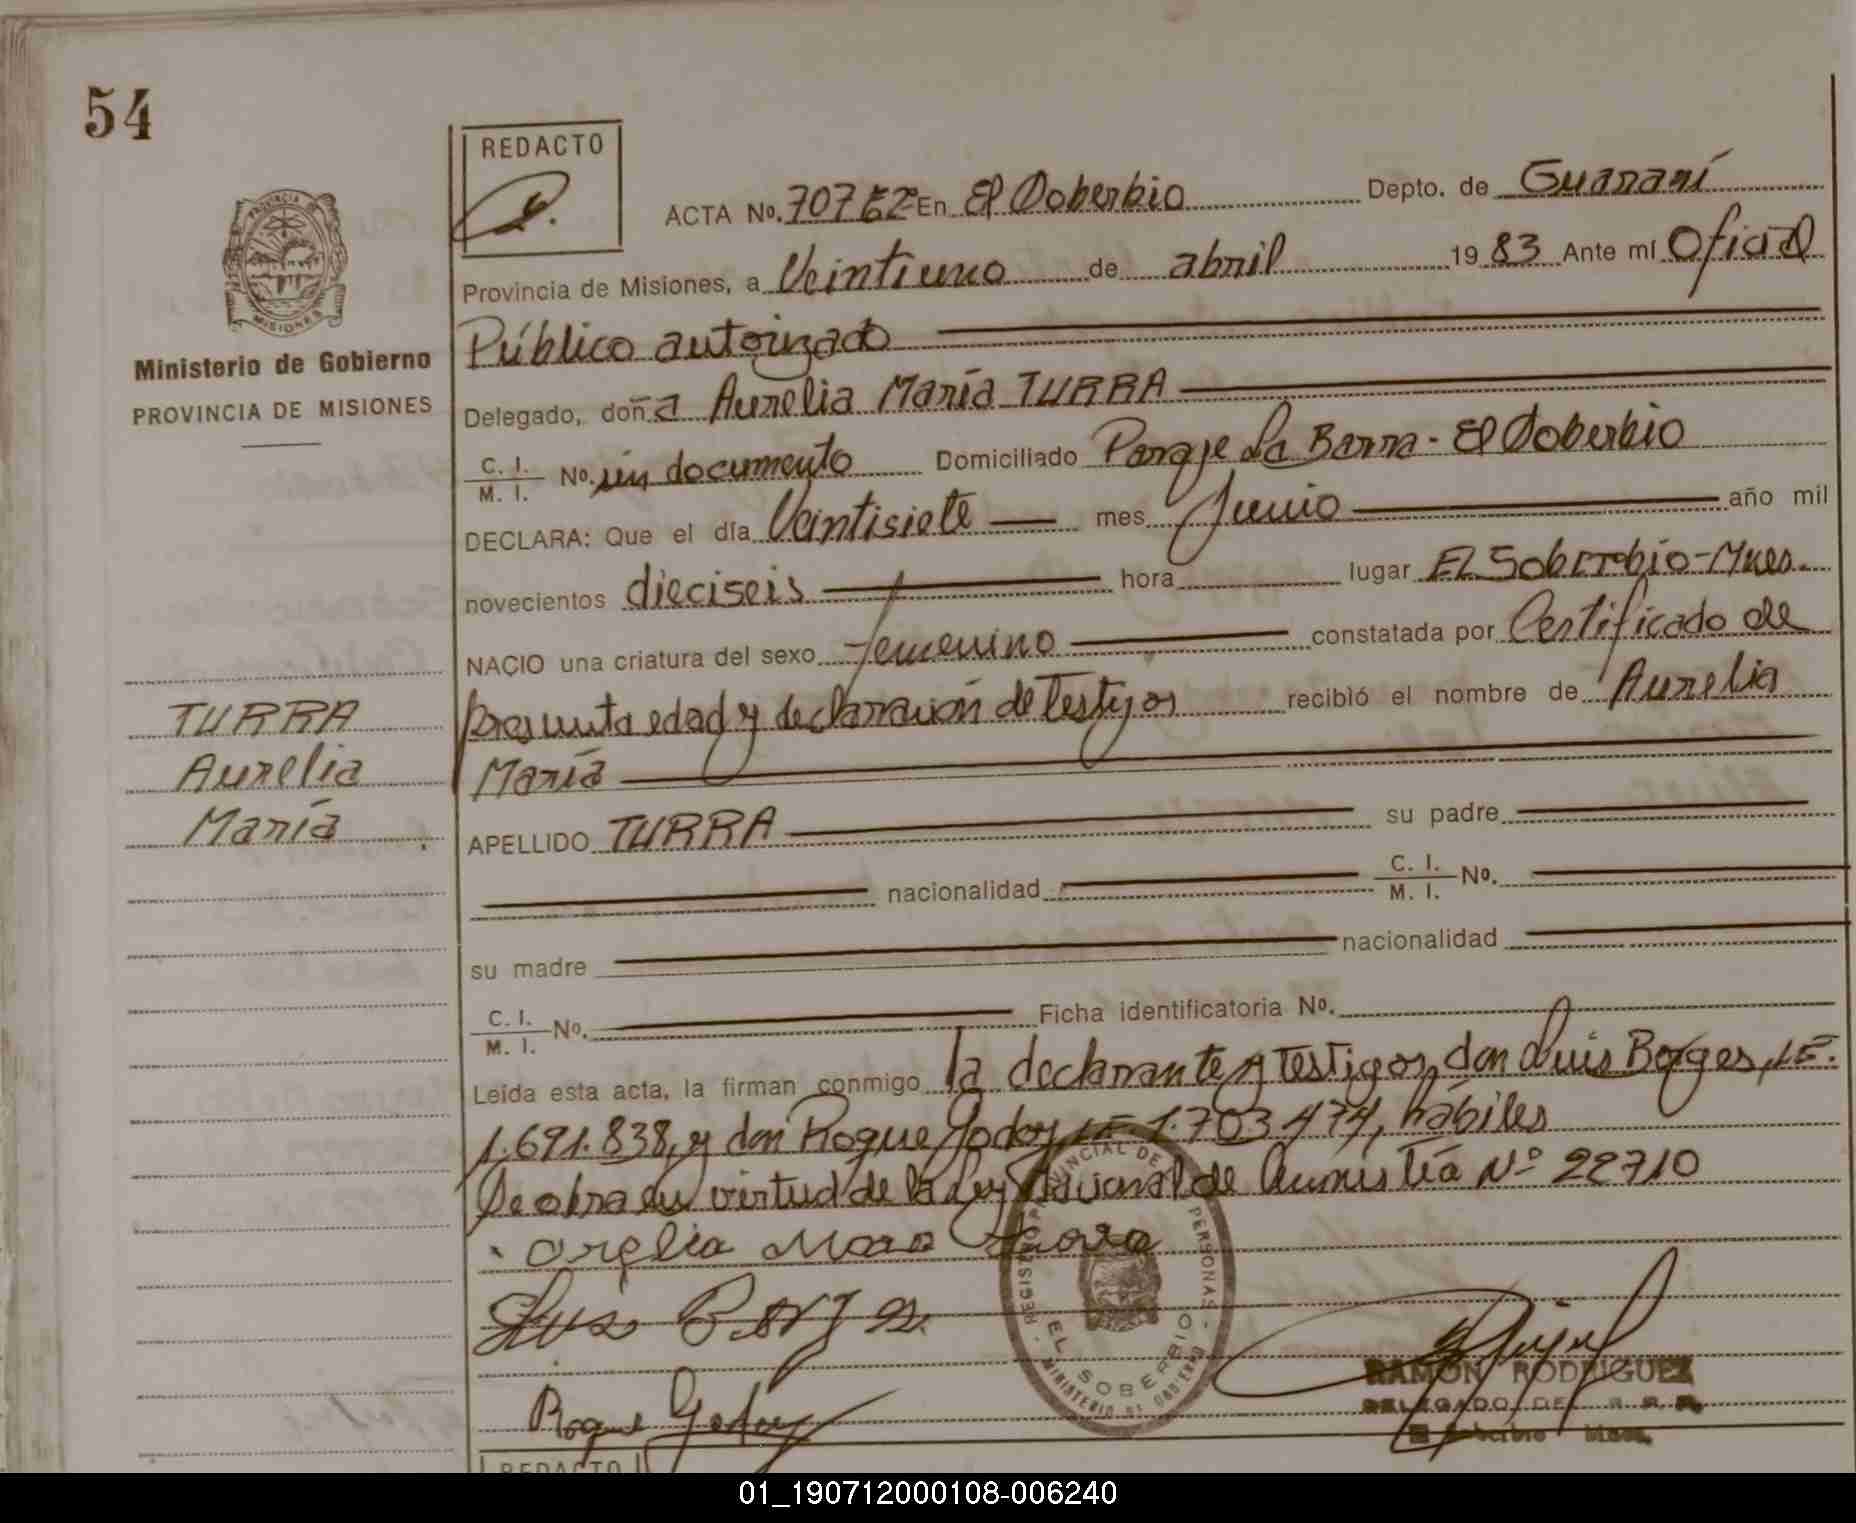 54
REDACTO
ACTA No. 707 En El Soberbio Depto. de Guaraní
Provincia de Misiones, a Veintiuno de abril 1983 Ante mí Oficial
PROVINCIA DE
MISIONES
Público autorizado
Ministerio de Gobierno
PROVINCIA DE MISIONES
Delegado, doña Aurelia María TURRA
C. I.
M. I. No. sin documento Domiciliado Paraje La Barra - El Soberbio
DECLARA: Que el día Veintisiete mes Junio año mil
novecientos dieciseis hora lugar EL Soberbio-Mnes.
NACIO una criatura del sexo femenino constatada por Certificado de
presunta edad y declaración de Testigos recibió el nombre de Aurelia
María
TURRA
Aurelia
María
APELLIDO TURRA su padre
nacionalidad C. I.
M. I. No.
su madre nacionalidad
C. I.
M. I. No. Ficha identificatoria No.
Leída esta acta, la firman conmigo la declarante y Testigos, don Luis Borges, L.E.
1.691.838, y don Roque Godoy L.E. 1.703.474, hábiles
Se obra en virtud de la Ley Nacional de Amnistía Nº 22710
Luis
Roque Godoy
REGISTRO PROVINCIAL DE PERSONAS
EL SOBERBIO
MINISTERIO DE GOBIERNO
RAMON RODRIGUEZ
DELEGADO DEL R. P. P.
El Soberbio Mnes.
REDACTO
01_190712000108-006240